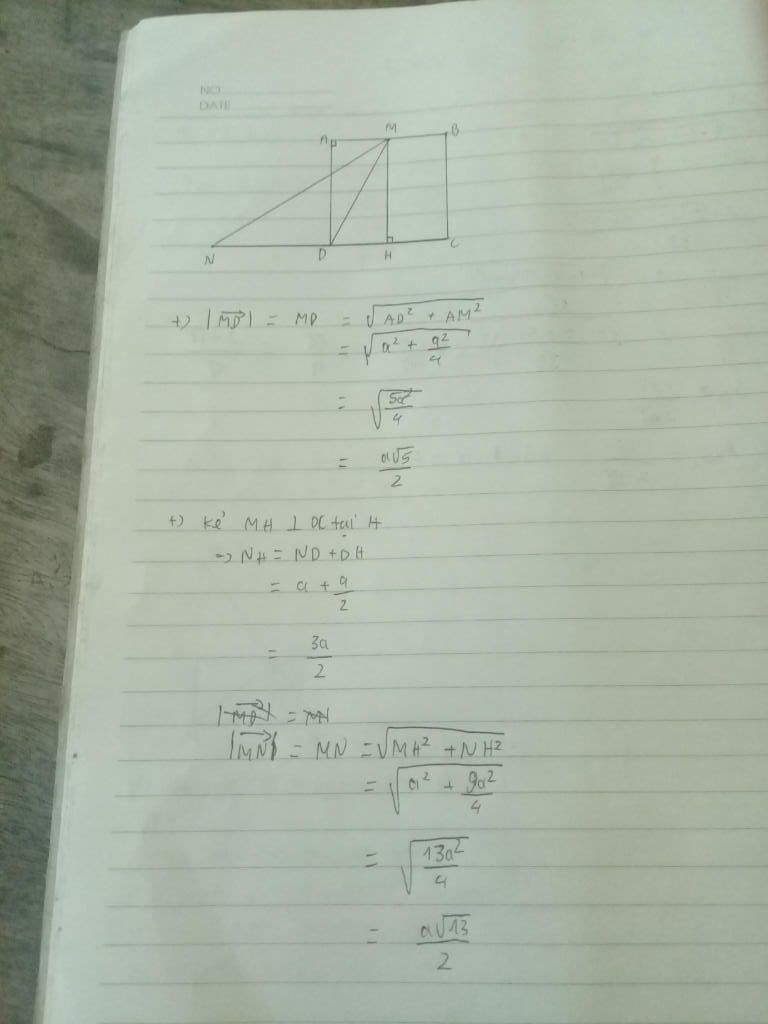 NO
DATE
A M B
N D H C
+) |MD→| = MD = √(AD² + AM²)
= √(a² + a²/4)
= √(5a²/4)
= a√5/2
+) Kẻ MH ⊥ DC tại H
=> NH = ND + DH
= a + a/2
= 3a/2
|MN→| = MN = √(MH² + NH²)
= √(a² + 9a²/4)
= √(13a²/4)
= a√13/2